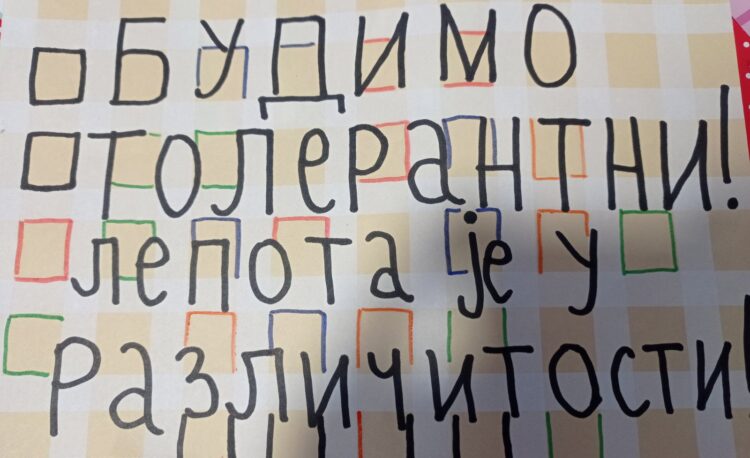 БУДИМО
ТОЛЕРАНТНИ!
лепота је у
различитости!